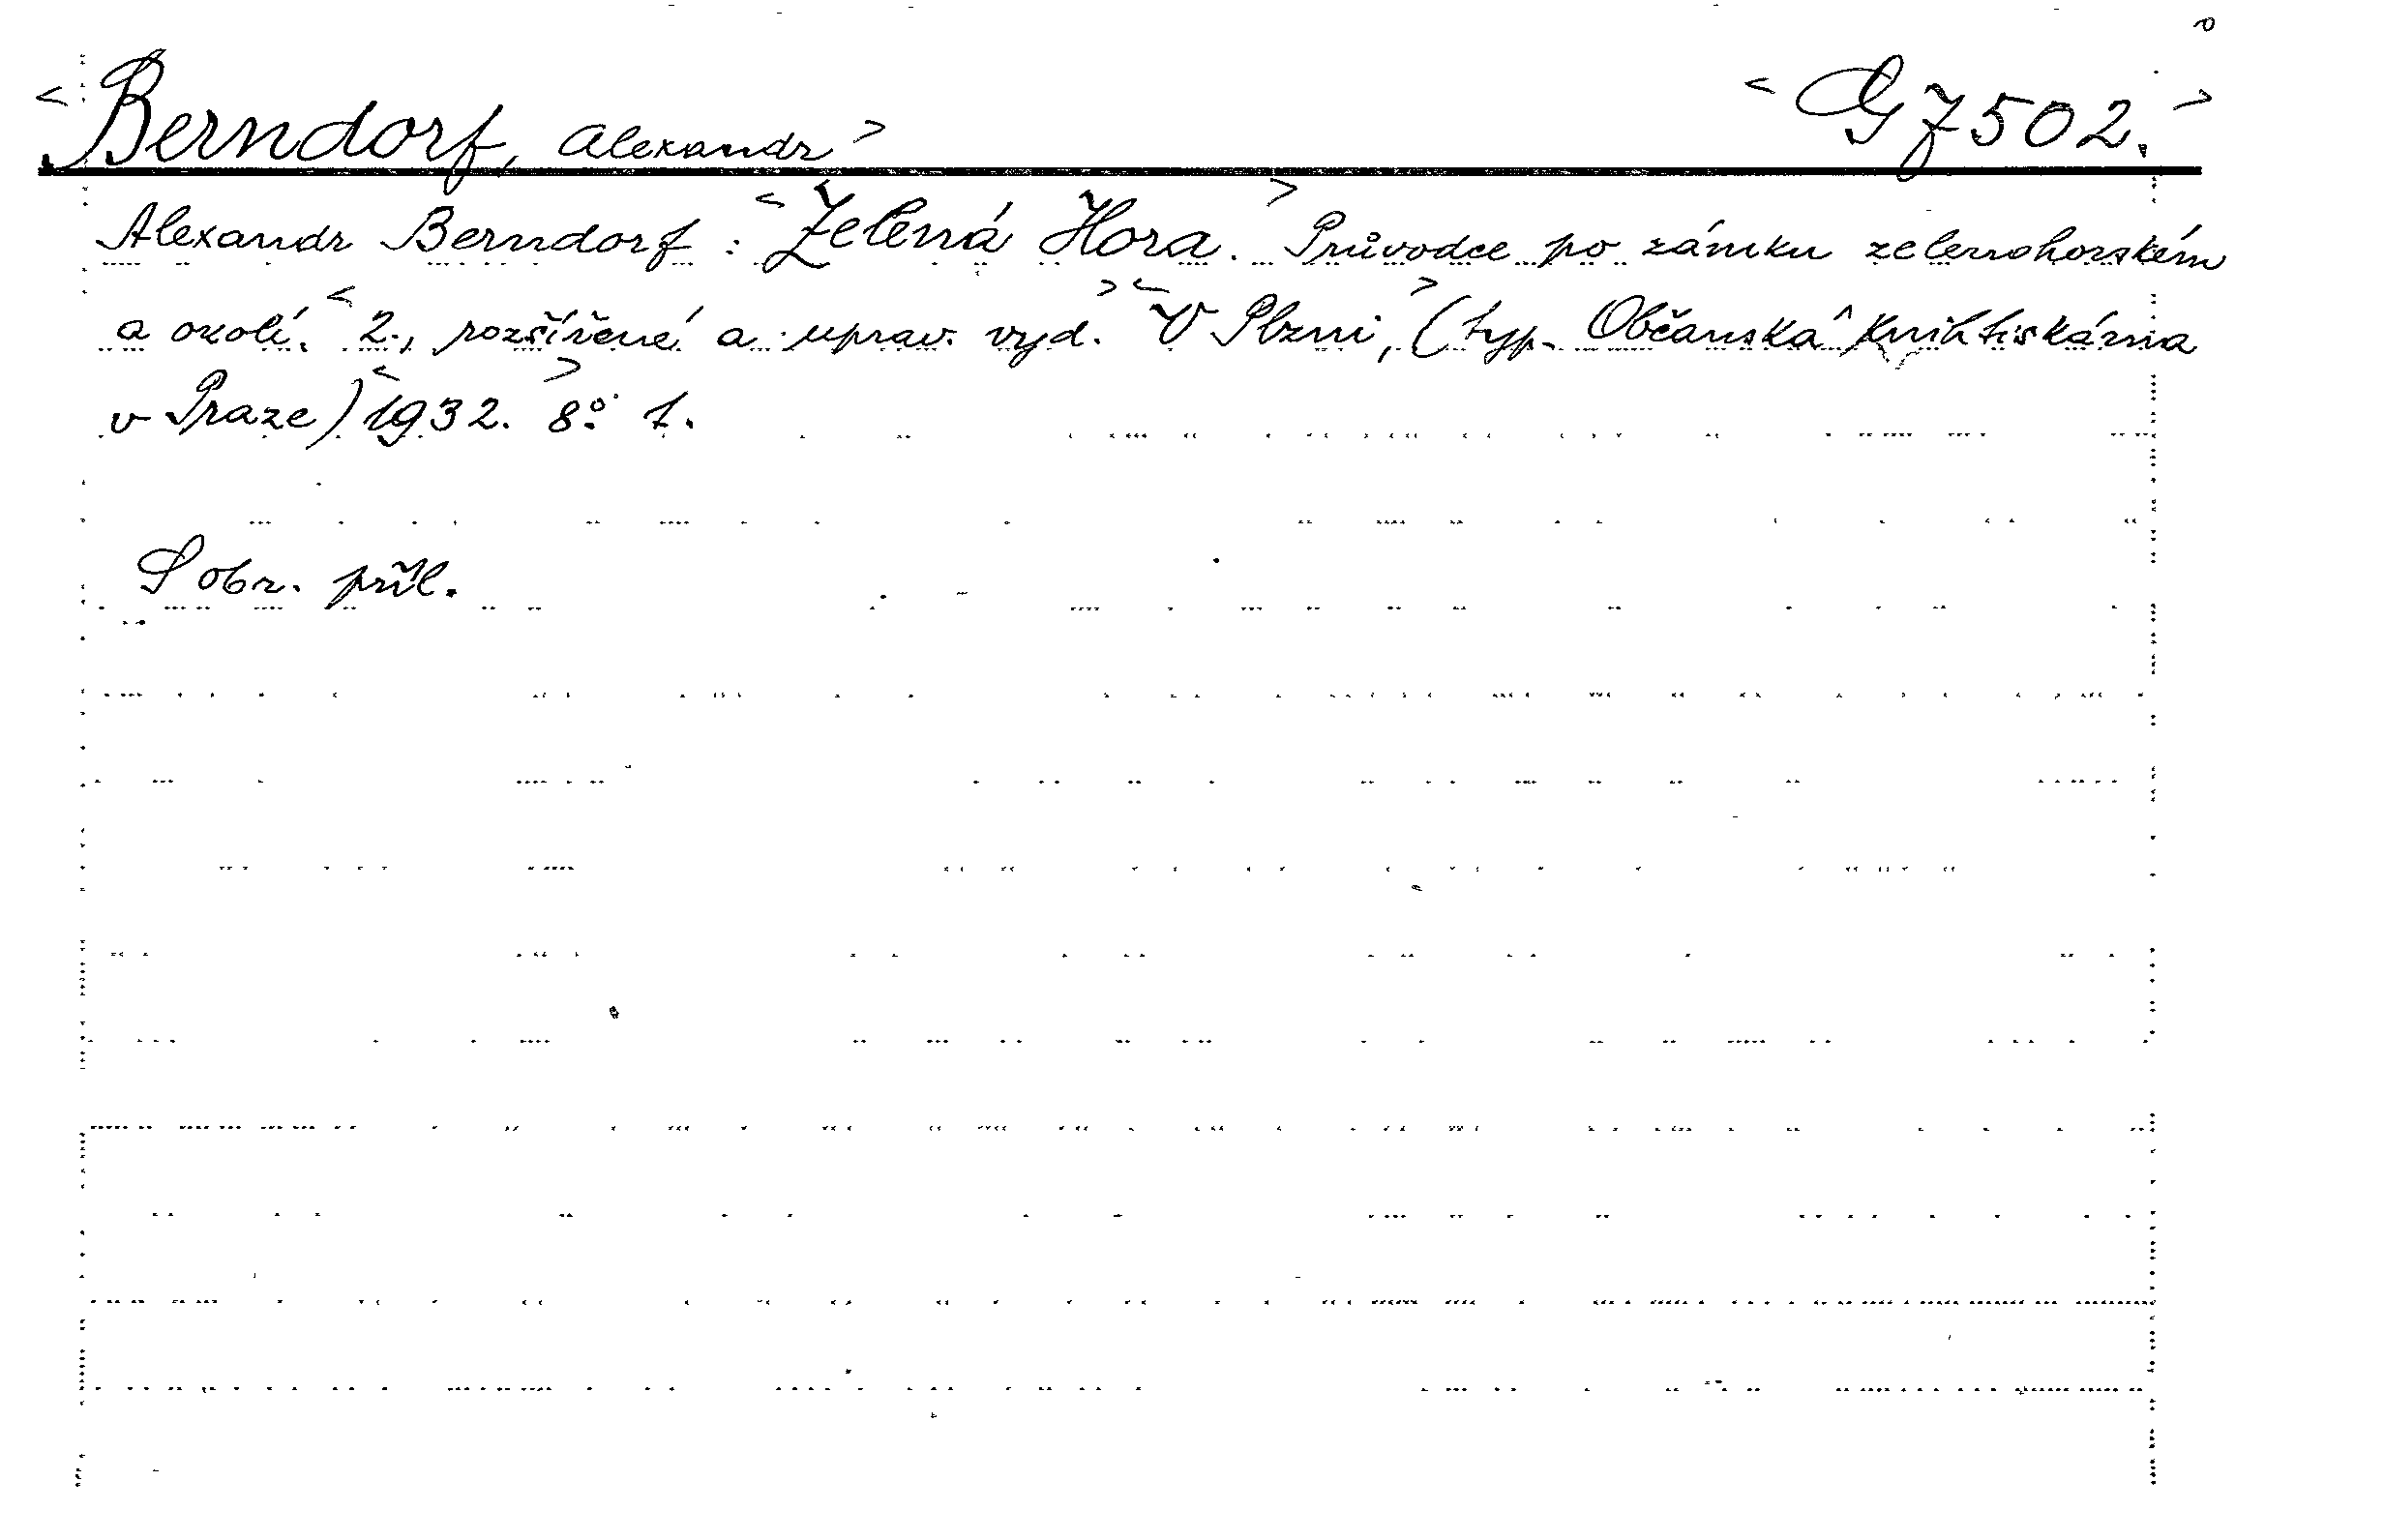 <Berndorf, Alexandr> <G 7502.>
Alexandr Berndorf: <Zelená Hora.> Průvodce po zámku zelenohorském
a okolí. <2., rozšířené a uprav. vyd.> <V Plzni,> (typ. Občanská knihtiskárna
v Praze) <1932.> 8° 1.
S obr. příl.